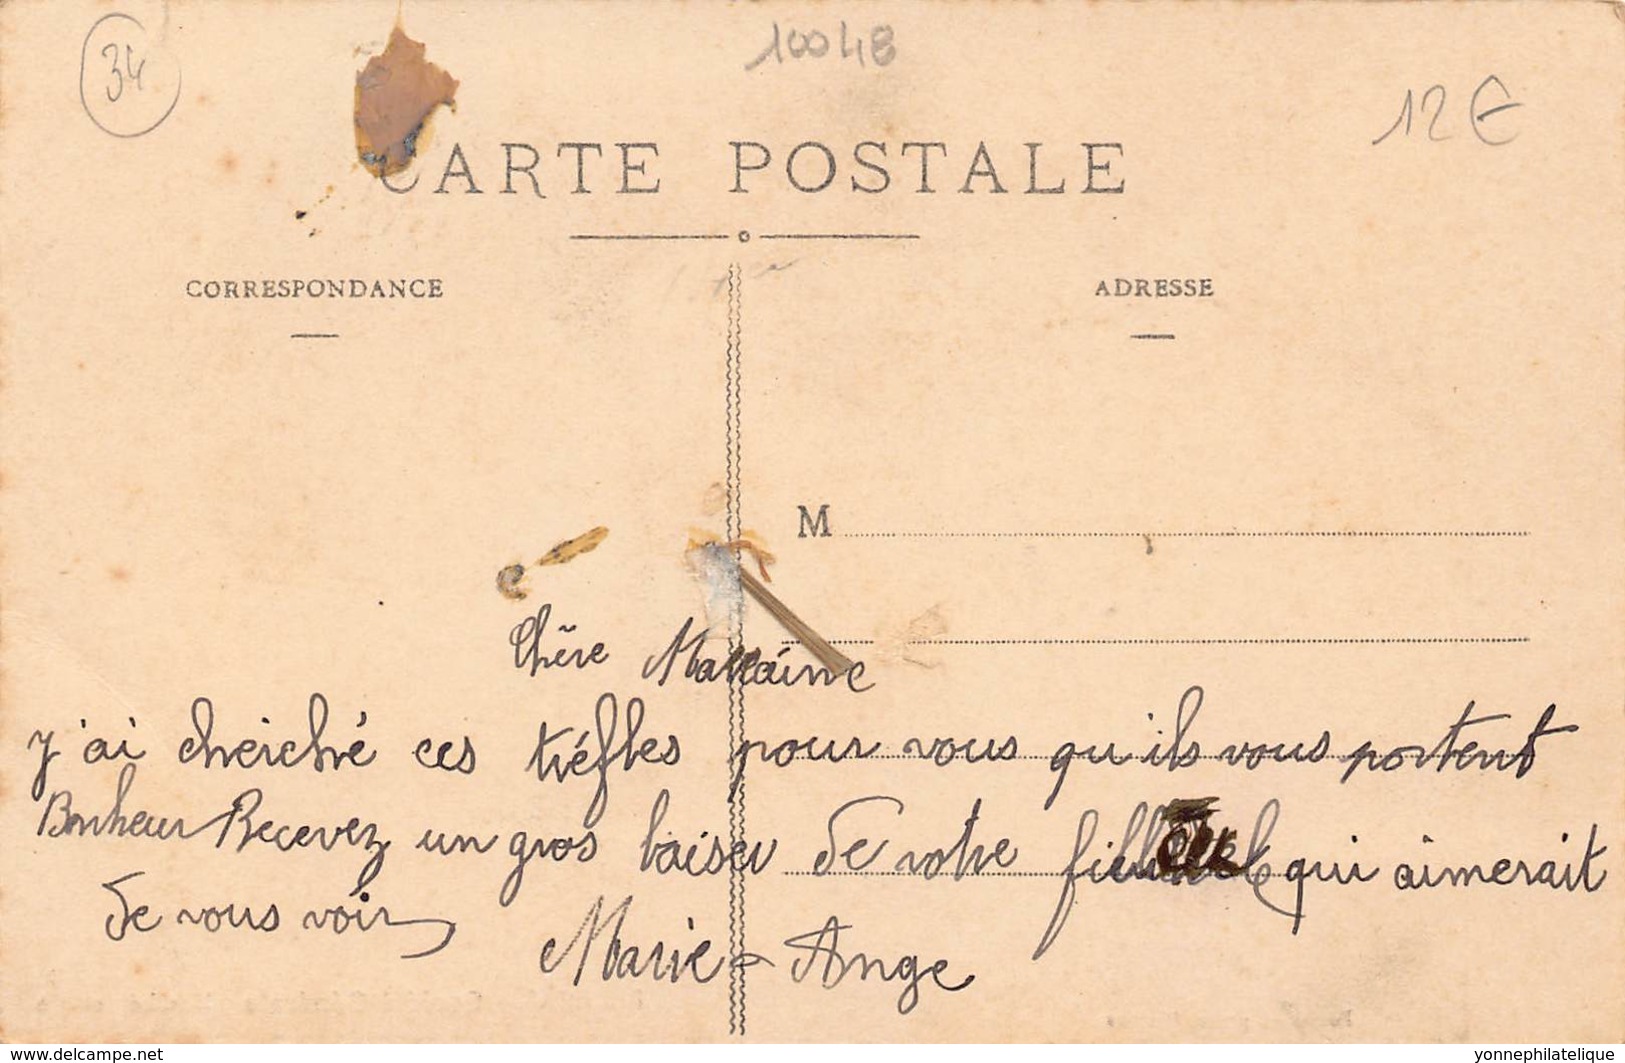 34
10048
12€
CARTE POSTALE
CORRESPONDANCE
ADRESSE
M
Chère Marraine
J'ai cherché ces tréfles pour vous qu'ils vous portent
Bonheur Recevez un gros baiser de votre filleule qui aimerait
de vous voir
Marie-Ange
www.delcampe.net
yonnephilatelique